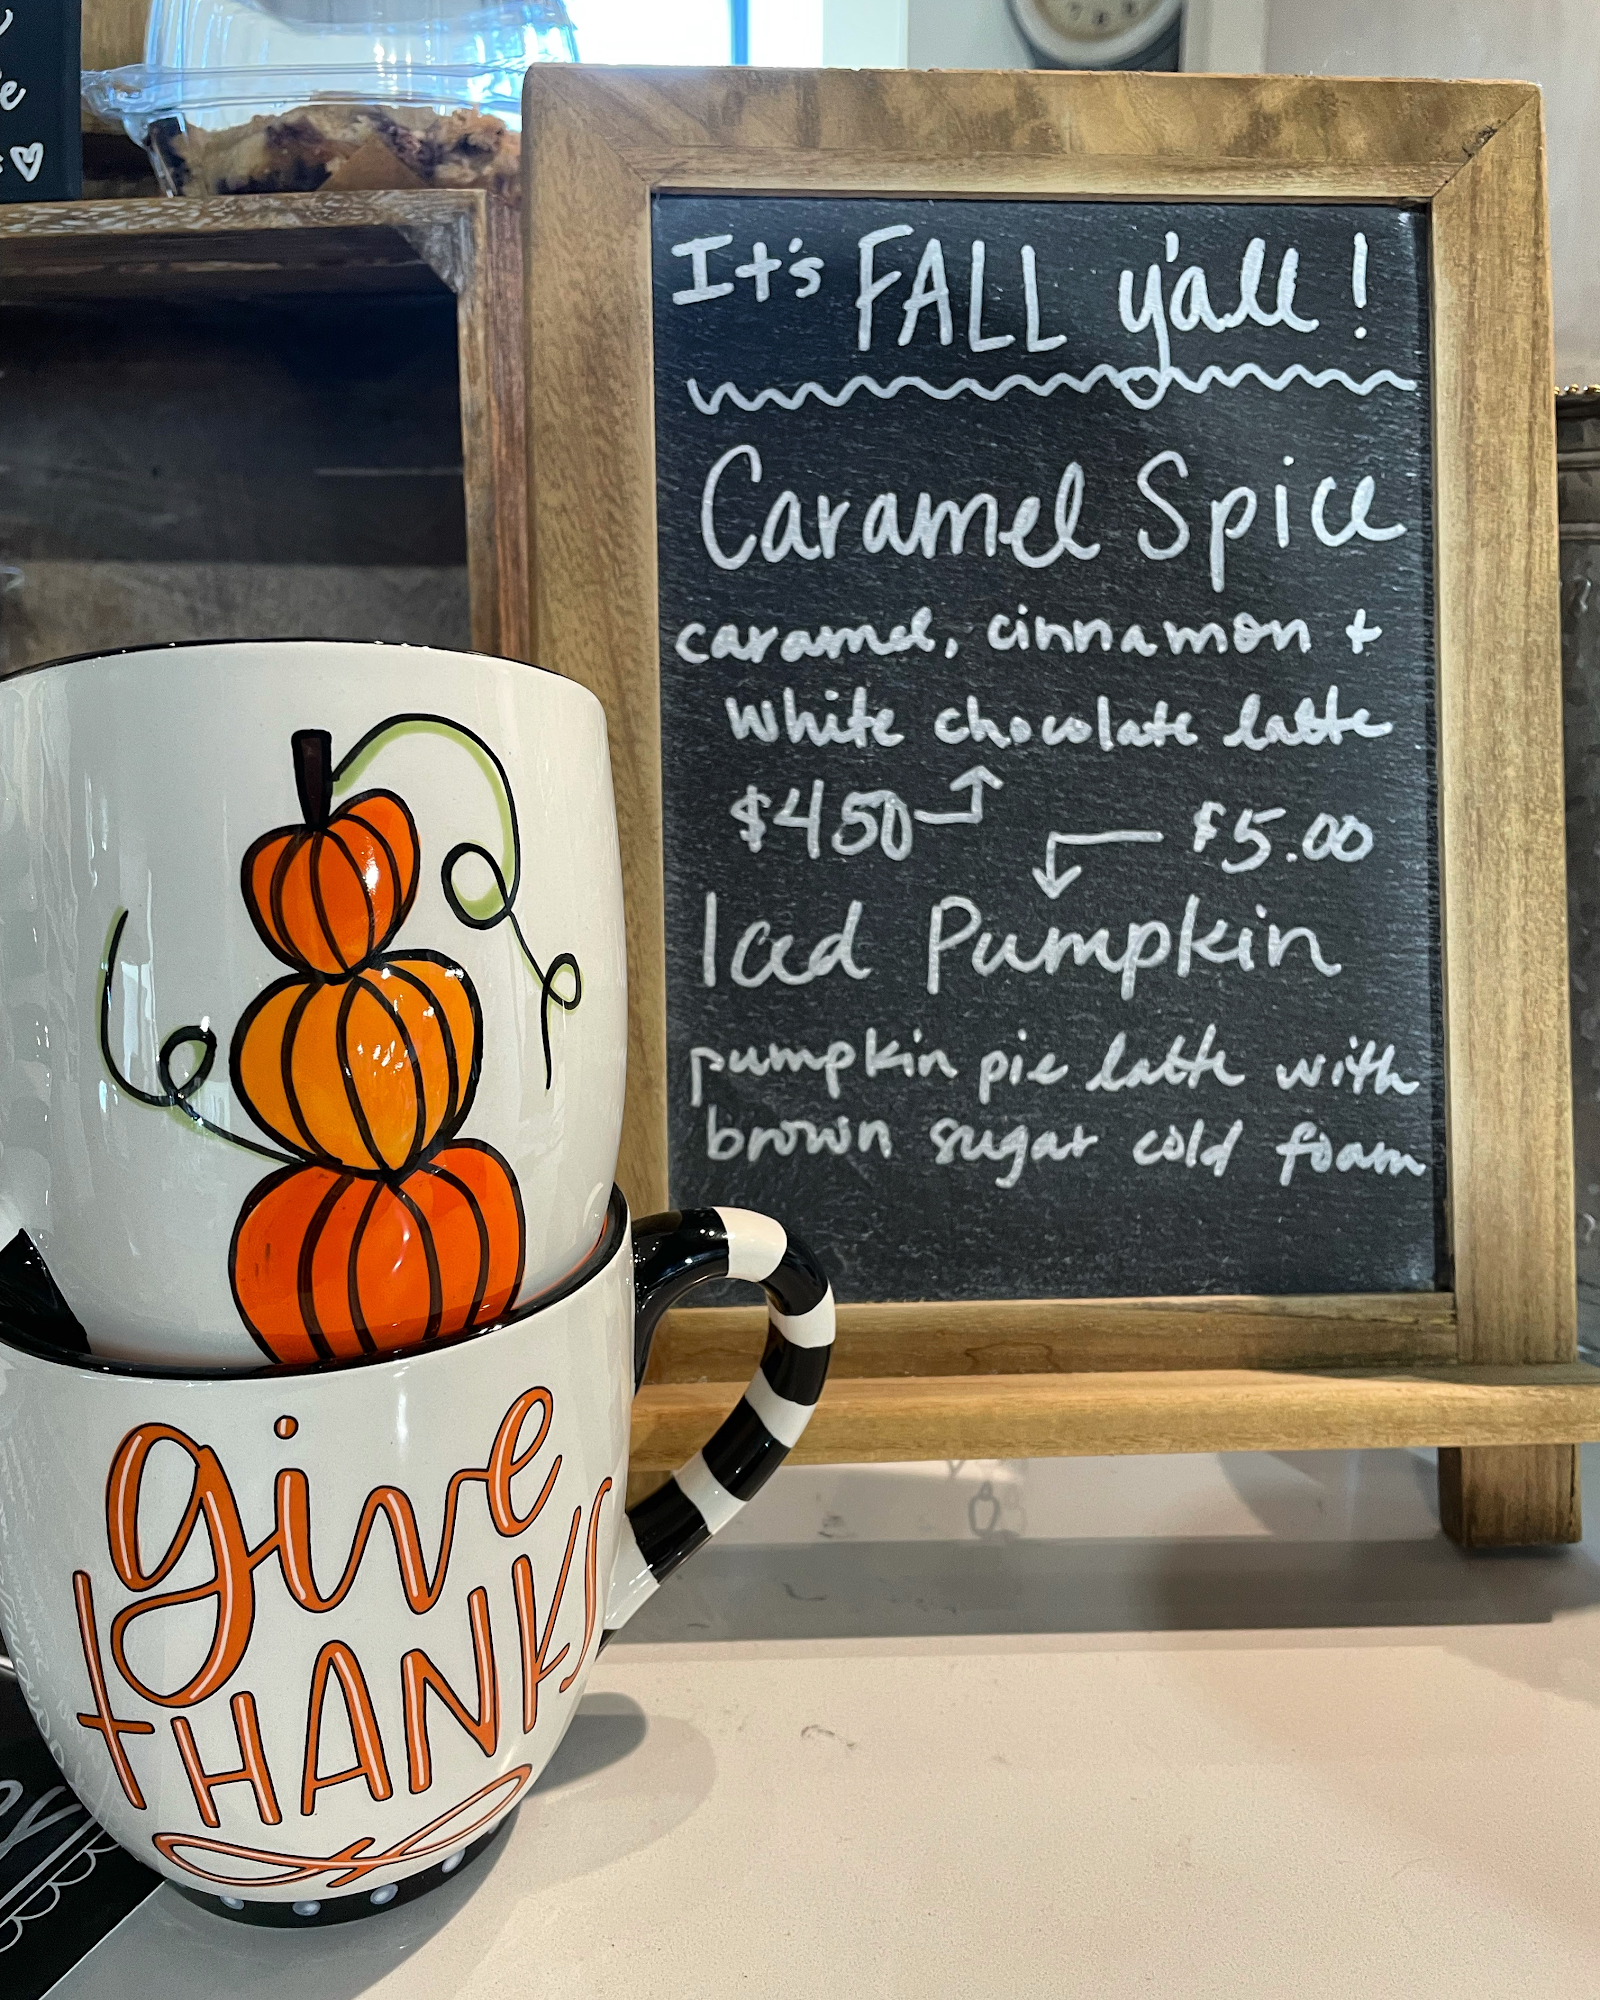 It's FALL y'all!
Caramel Spice
caramel, cinnamon +
white chocolate latte
$450 $5.00
Iced Pumpkin
pumpkin pie latte with
brown sugar cold foam
give
THANKS